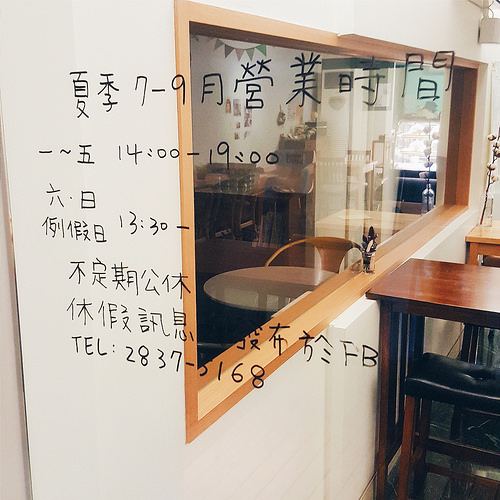 夏季 7-9月營業時間
一~五 14:00-19:00
六·日
例假日 13:30-
不定期公休
休假訊息 發布於FB
TEL: 2837-5168